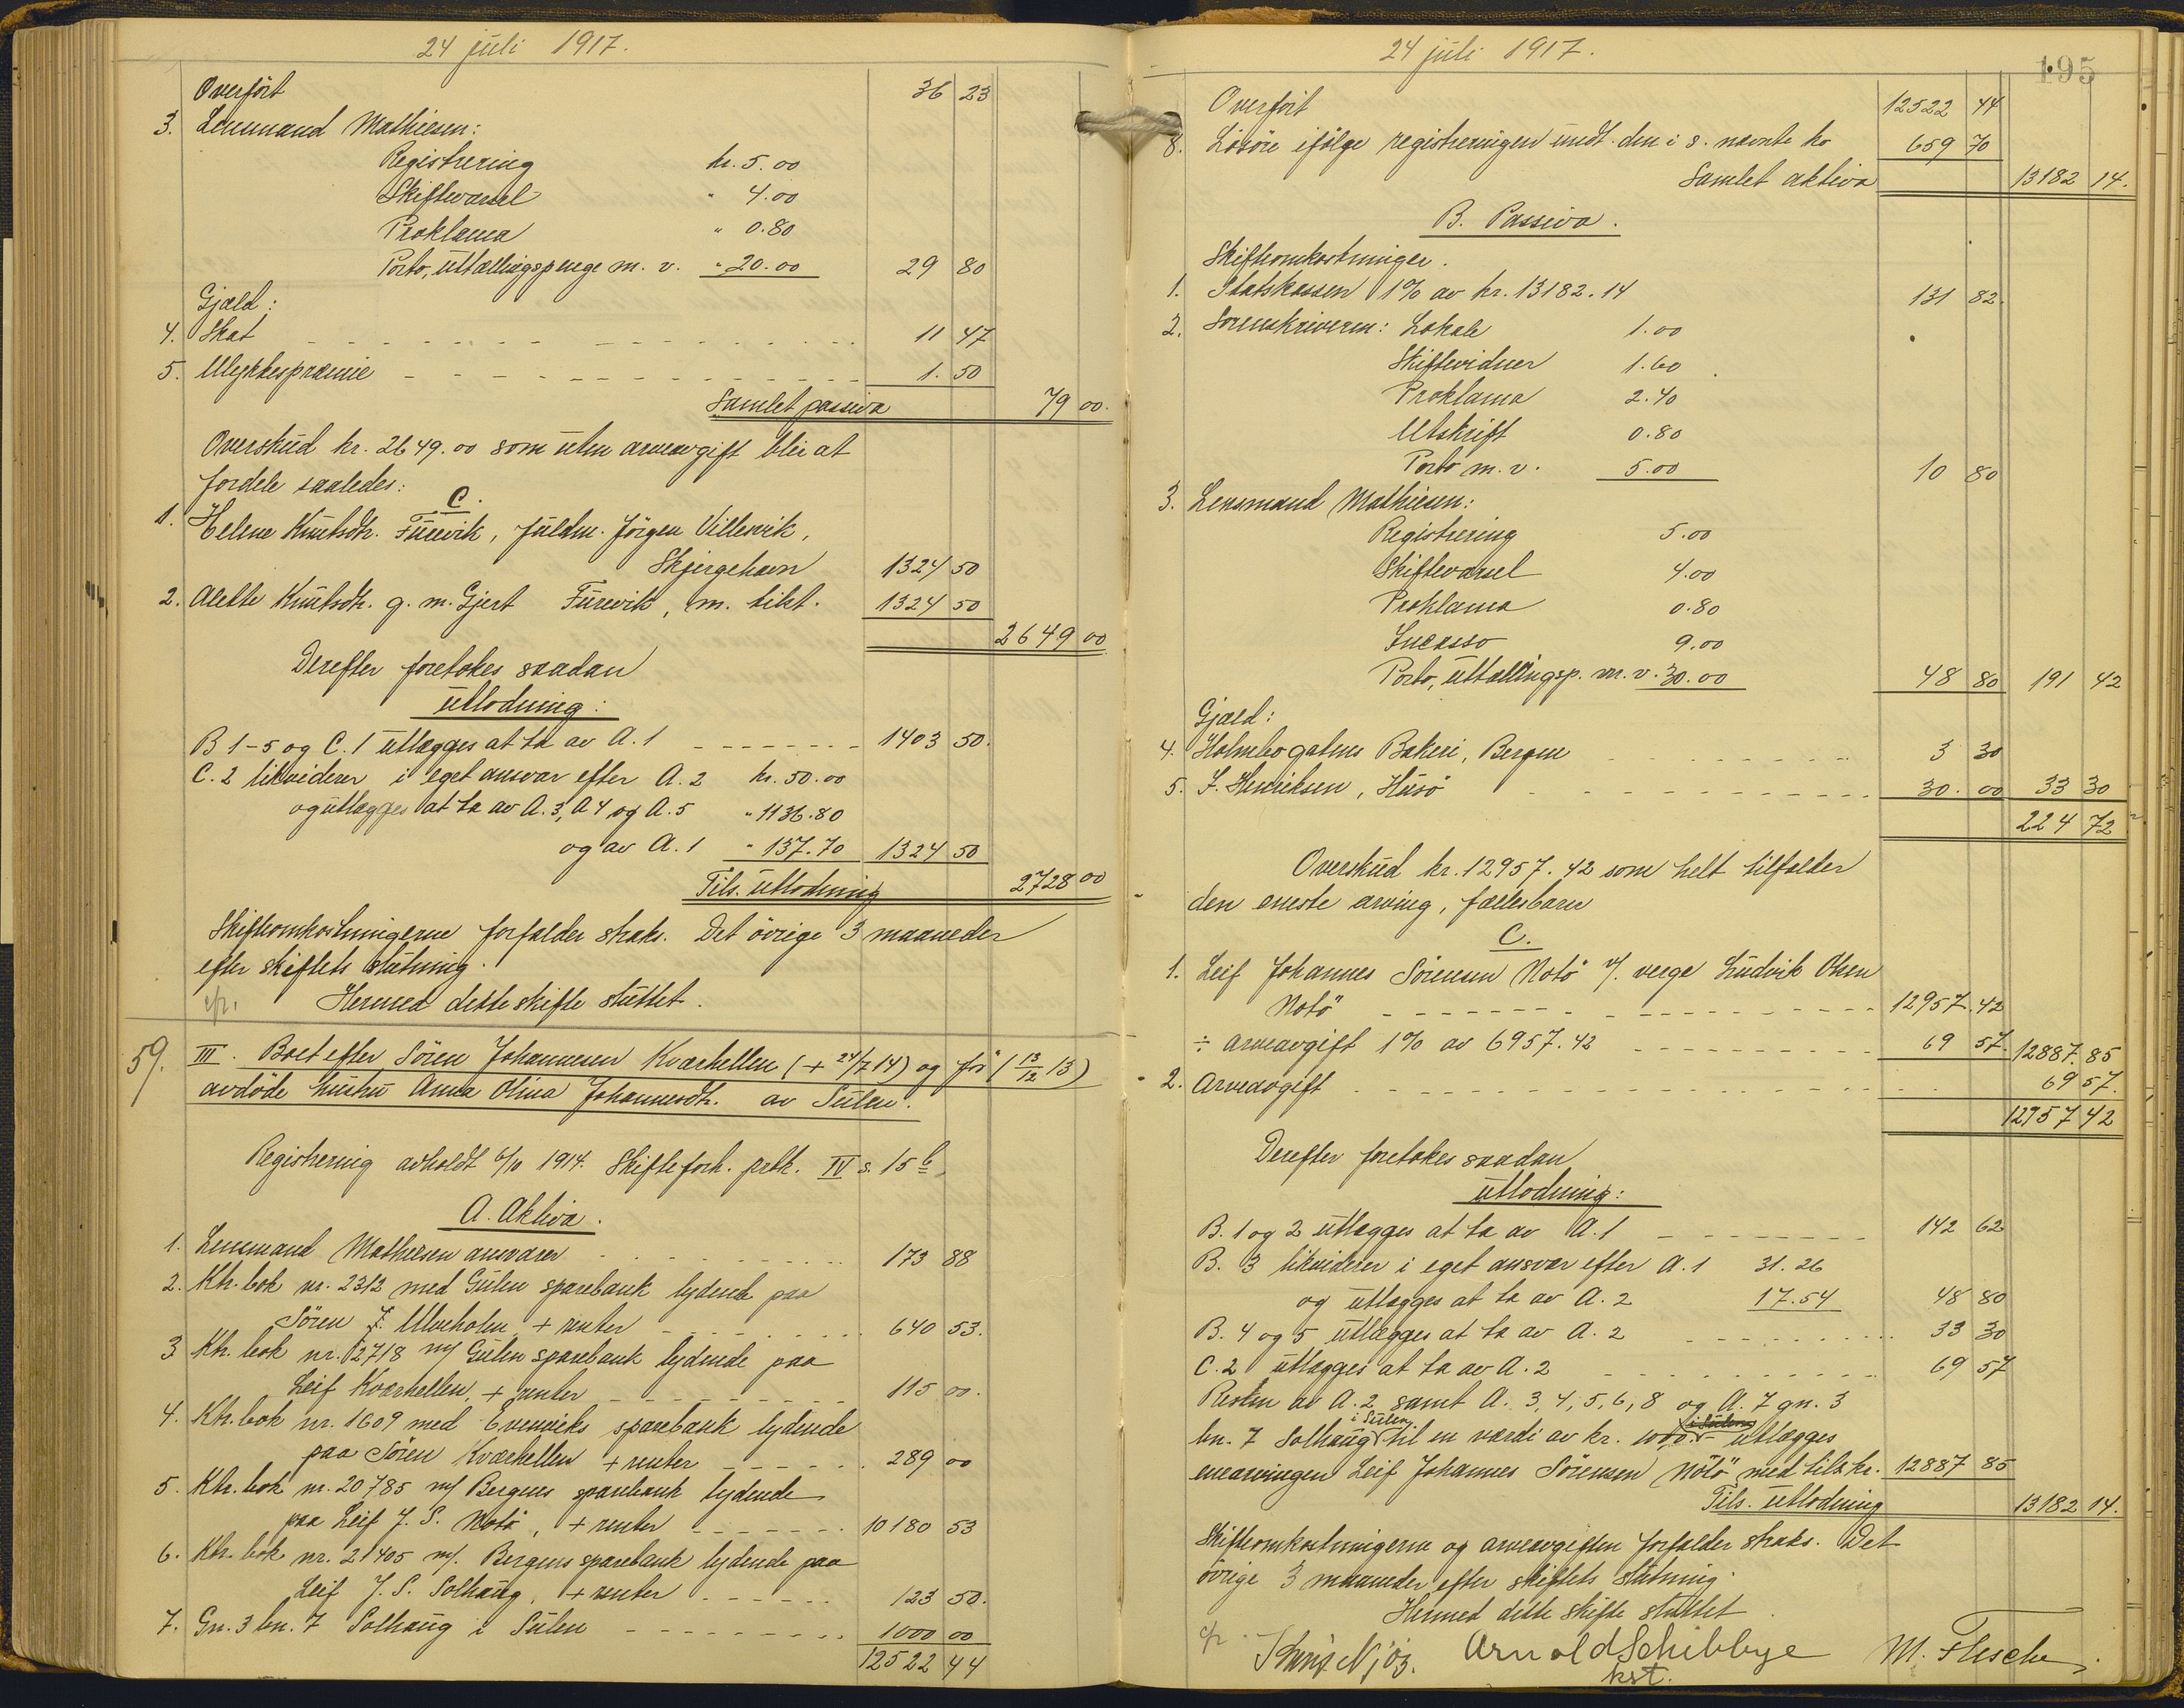 24 juli 1917.
Overfört 36 23
3. Lensmand Mathiesen:
Registrering kr. 5.00
Skiftevarsel " 4.00
Proklama " 0.80
Porto, uttællingspenge m. v. " 20.00 29 80
Gjæld:
4. Skat 11 47
5. Ulykkespræmie 1. 50
Samlet passiva 79 00.
Overskud kr. 2649.00 som uten arveavgift blir at
fordele saaledes:
C.
1. Helene Knutsdtr. Furevik, fuldm. Jörgen Villevik,
Skjergehavn 1324 50
2. Alette Knutsdtr. g. m. Gjert Furevik, m. tilst. 1324 50
2649 00
Derefter foretokes saadan
utlodning:
B 1-5 og C. 1 utlægges at ta av A. 1 1403 50.
C. 2 likviderer i eget ansvar efter A. 2 kr. 50.00
og utlægges at ta av A. 3, A 4 og A. 5 " 1136.80
og av A. 1 " 137.70 1324 50
Tils. utlodning 2728 00
Skifteomkostningerne forfalder straks. Det övrige 3 maaneder
efter skiftets slutning.
Hermed dette skifte sluttet.
59. III. Boet efter Sören Johannesen Kværhellen (+ 24/7 14) og för (13/12 13)
avdöde hustru Anna Olina Johannesdtr. av Sulen.
Registrering avholdt 6/10 1914. Skifteforh. prtk. IV s. 15 b
A. Aktiva.
1. Lensmand Mathiesen ansvarer 173 88
2. Ktr. bok nr. 2312 med Gulen sparebank lydende paa
Sören J. Ulveholm + renter 640 53.
3 Ktr. bok nr. 2718 m/ Gulen sparebank lydende paa
Leif Kværhellen, + renter 115 00.
4. Ktr. bok nr. 1609 med Evenviks sparebank lydende
paa Sören Kværhellen + renter 289 00
5. Ktr. bok nr. 20785 m/ Bergens sparebank lydende
paa Leif J. S. Notö, + renter 10180 53
6. Ktr. bok nr. 21405 m/. Bergens sparebank lydende paa
Leif J. S. Solhaug, + renter 123 50.
7. Gn. 3 bn. 7 Solhaug i Sulen 1000 00
12522 44
24 juli 1917.
195
Overfört 12522 44
8. Lösöre ifölge registreringen undt. den i s. nævnte ko 659 70
Samlet aktiva 13182 14.
B. Passiva.
Skifteomkostninger.
1. Statskassen 1% av kr. 13182.14 131 82.
2. Sorenskriveren: Lokale 1.00
Skiftevidner 1.60
Proklama 2.40
Utskrift 0.80
Porto m. v. 5.00 10 80
3. Lensmand Mathiesen:
Registrering 5.00
Skiftevarsel 4.00
Proklama 0.80
Incasso 9.00
Porto, uttællingsp. m. v. 30.00 48 80 191 42
Gjæld:
4. Holmbogatens Bakeri, Bergen 3 30
5. J. Henriksen, Husö 30. 00 33 30
224 72
Overskud kr. 12957.42 som helt tilfalder
den eneste arving, fællesbarn
C.
1. Leif Johannes Sörensen Notö v/. verge Ludvik Olsen
Notö 12957.42
÷ arveavgift 1% av 6957.42 69 57. 12887.85
2. Arveavgift 69 57.
12957 42
Derefter foretokes saadan
utlodning:
B. 1 og 2 utlægges at ta av A. 1 142 62
B. 3 likviderer i eget ansvar efter A. 1 31.26
og utlægges at ta av A. 2 17.54 48 80
B. 4 og 5 utlægges at ta av A. 2 33 30
C. 2 utlægges at ta av A. 2 69 57
Resten av A. 2 samt A. 3, 4, 5, 6, 8 og A. 7 gn. 3
bn. 7 Solhaug i Sulen til en værdi av kr. 1000.- i Sulen utlægges
enearvingen Leif Johannes Sörensen Notö med tils. kr. 12887 85
Tils. utlodning 13182 14.
Skifteomkostningerne og arveavgiften forfalder straks. Det
övrige 3 maaneder efter skiftets slutning.
Hermed dette skifte sluttet.
Arnold Schibbye M. Flesche
kst.